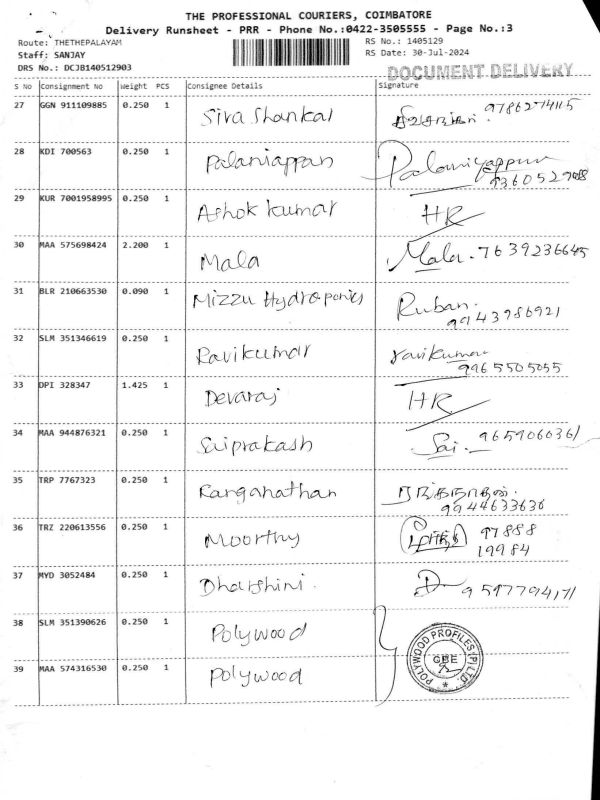 THE PROFESSIONAL COURIERS, COIMBATORE
Delivery Runsheet - PRR - Phone No.:0422-3505555 - Page No.:3
Route: THETHEPALAYAM RS No.: 1405129
Staff: SANJAY RS Date: 30-Jul-2024
DRS No.: DCJB140512903 DOCUMENT DELIVERY
S No Consignment No Weight PCS Consignee Details Signature
27 GGN 911109885 0.250 1 Siva Shankar
28 KDI 700563 0.250 1 Palaniappan Palaniyappan
29 KUR 7001958995 0.250 1 Ashok kumar HR
30 MAA 575698424 2.200 1 Mala Mala. 7639236645
31 BLR 210663530 0.090 1 Mizzu Hydroponics Ruban.
9943986921
32 SLM 351346619 0.250 1 Ravikumar ravikumar
9965505055
33 DPI 328347 1.425 1 Devaraj HR
34 MAA 944876321 0.250 1 Saiprakash Sai. 9659060361
35 TRP 7767323 0.250 1 Ranganathan ரங்கநாதன்.
9944633636
36 TRZ 220613556 0.250 1 Moorthy மூர்த்தி 97888
19984
37 MYD 3052484 0.250 1 Dharshini. D 9597794171
38 SLM 351390626 0.250 1 Polywood
39 MAA 574316530 0.250 1 Polywood
POLYWOOD PROFILES (P) LTD.
CBE